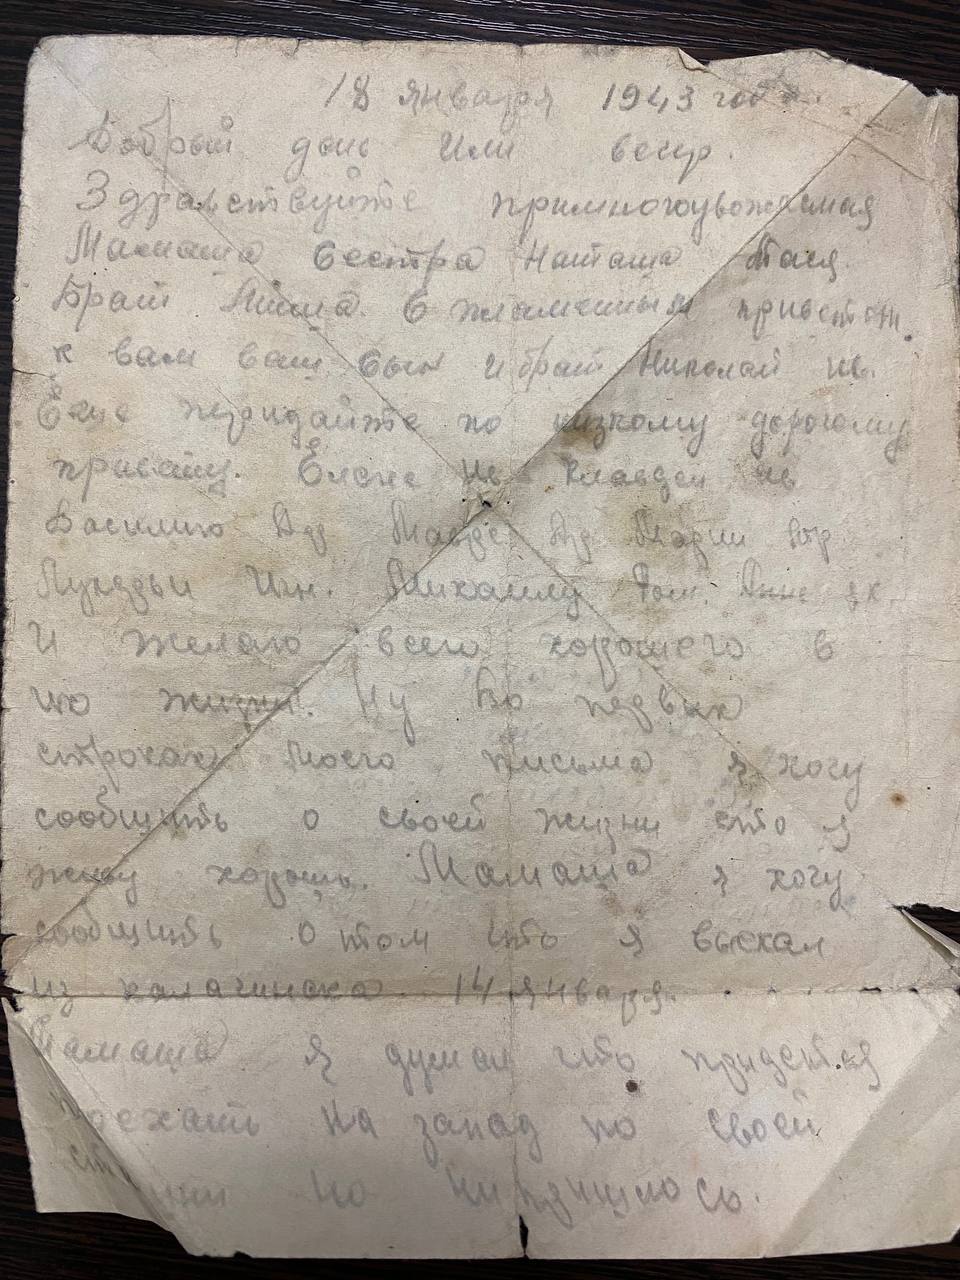 18 января 1943 года
Добрый день Или вечер.
Здравствуйте примногоуважаемая
Мамаша Сестра Наташа Тася
Брат Миша. С пламенным приветом
к вам ваш Сын И брат Николай Ив.
Еще передайте по низкому дорогому
привету. Елене Ив Клавдеи Ив
Василию Мавре Марии
Лукерьи Ин. Михаилу Ром. Анне як.
И желаю всего хорошего в
жизни. Ну Во первых
строках Моего письма я хочу
сообщить о своей жизни что я
живу хорошо. Мамаша я хочу
сообщить О том что я выехал
из калачинска 14 января.
Мамаша я думал что придется
поехать На запад по своей
но Ни пришлось.